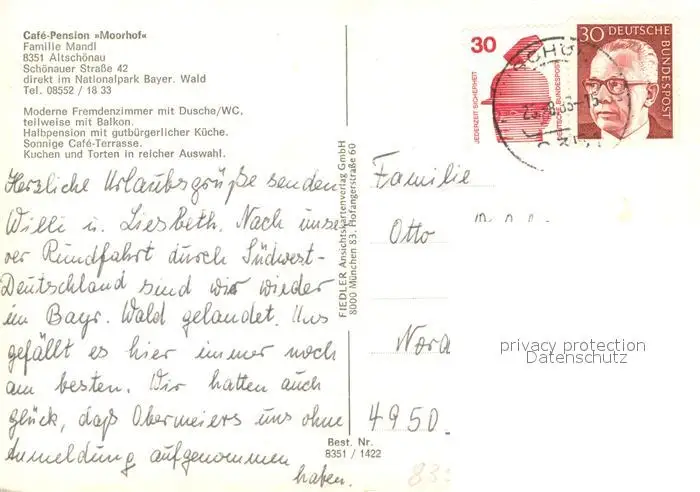 Café-Pension »Moorhof«
Familie Mandl
8351 Altschönau
Schönauer Straße 42
direkt im Nationalpark Bayer. Wald
Tel. 08552 / 18 33
Moderne Fremdenzimmer mit Dusche/WC,
teilweise mit Balkon.
Halbpension mit gutbürgerlicher Küche.
Sonnige Café-Terrasse.
Kuchen und Torten in reicher Auswahl.
Herzliche Urlaubsgrüße senden
Willi u. Liesbeth. Nach unse-
rer Rundfahrt durch Südwest-
Deutschland sind wir wieder
im Bayr. Wald gelandet. Uns
gefällt es hier immer noch
am besten. Wir hatten auch
glück, daß Obermeiers uns ohne
Anmeldung aufgenommen
haben.
FIEDLER Ansichtskartenverlag GmbH
8000 München 83, Hofangerstraße 60
Best. Nr.
8351 / 1422
30
JEDERZEIT SICHERHEIT
DEUTSCHE BUNDESPOST
30 DEUTSCHE
BUNDESPOST
Familie
Otto
Nord
4950
privacy protection
Datenschutz